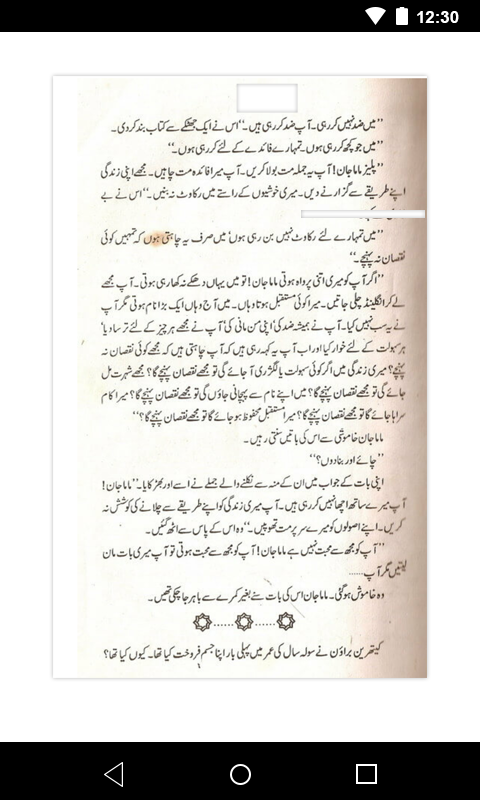 12:30
”میں ضد نہیں کر رہی۔ آپ ضد کر رہی ہیں۔“ اس نے ایک جھٹکے سے کتاب بند کر دی۔
”میں جو کچھ کر رہی ہوں۔ تمہارے فائدے کے لئے کر رہی ہوں۔“
”پلیز ماما جان! آپ یہ جملہ مت بولا کریں۔ آپ میرا فائدہ مت چاہیں۔ مجھے اپنی زندگی
اپنے طریقے سے گزارنے دیں۔ میری خوشیوں کے راستے میں رکاوٹ نہ بنیں۔“ اس نے بے
”میں تمہارے لئے رکاوٹ نہیں بن رہی ہوں‘ میں صرف یہ چاہتی ہوں کہ تمہیں کوئی
نقصان نہ پہنچے۔“
”اگر آپ کو میری اتنی پرواہ ہوتی ماما جان! تو میں یہاں دھکے نہ کھا رہی ہوتی۔ آپ مجھے
لے کر انگلینڈ چلی جاتیں۔ میرا کوئی مستقبل ہوتا وہاں۔ میں آج وہاں ایک بڑا نام ہوتی مگر آپ
نے یہ سب نہیں کیا۔ آپ نے ہمیشہ ضد کی‘ اپنی من مانی کی‘ آپ نے مجھے ہر چیز کے لئے ترسا دیا‘
ہر سہولت کے لئے خوار کیا اور اب آپ یہ کہہ رہی ہیں کہ آپ چاہتی ہیں کہ مجھے کوئی نقصان نہ
پہنچے؟ میری زندگی میں اگر کوئی سہولت یا لگژری آ جائے گی تو مجھے نقصان پہنچے گا؟ مجھے شہرت مل
جائے گی تو مجھے نقصان پہنچے گا؟ میں اپنے نام سے پہچانی جاؤں گی تو مجھے نقصان پہنچے گا؟ میرا کام
سراہا جائے گا تو مجھے نقصان پہنچے گا؟ میرا مستقبل محفوظ ہو جائے گا تو مجھے نقصان پہنچے گا؟“
ماما جان خاموشی سے اس کی باتیں سنتی رہیں۔
”چائے اور بنا دوں؟“
اپنی بات کے جواب میں ان کے منہ سے نکلنے والے جملے نے اسے اور بھڑکایا۔ ”ماما جان!
آپ میرے ساتھ اچھا نہیں کر رہی ہیں۔ آپ میری زندگی کو اپنے طریقے سے چلانے کی کوشش نہ
کریں۔ اپنے اصولوں کو میرے سر پر مت تھوپیں۔“ وہ اس کے پاس سے اٹھ گئیں۔
”آپ کو مجھ سے محبت نہیں ہے ماما جان! آپ کو مجھ سے محبت ہوتی تو آپ میری بات مان
لیتیں مگر آپ......
وہ خاموش ہو گئی۔ ماما جان اس کی بات سنے بغیر کمرے سے باہر جا چکی تھیں۔
کیتھرین براؤن نے سولہ سال کی عمر میں پہلی بار اپنا جسم فروخت کیا تھا۔ کیوں کیا تھا؟